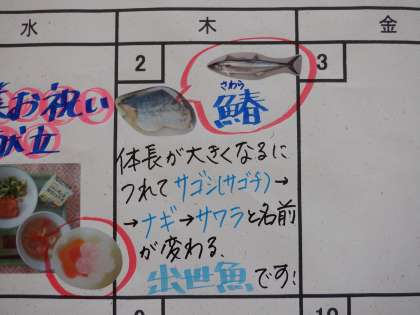 水
木
金
2
3
お祝い
献立
さわら
鰆
体長が大きくなるに
つれてサゴシ(サゴチ)→
→ナギ→サワラと名前
が変わる
出世魚です!
9
10